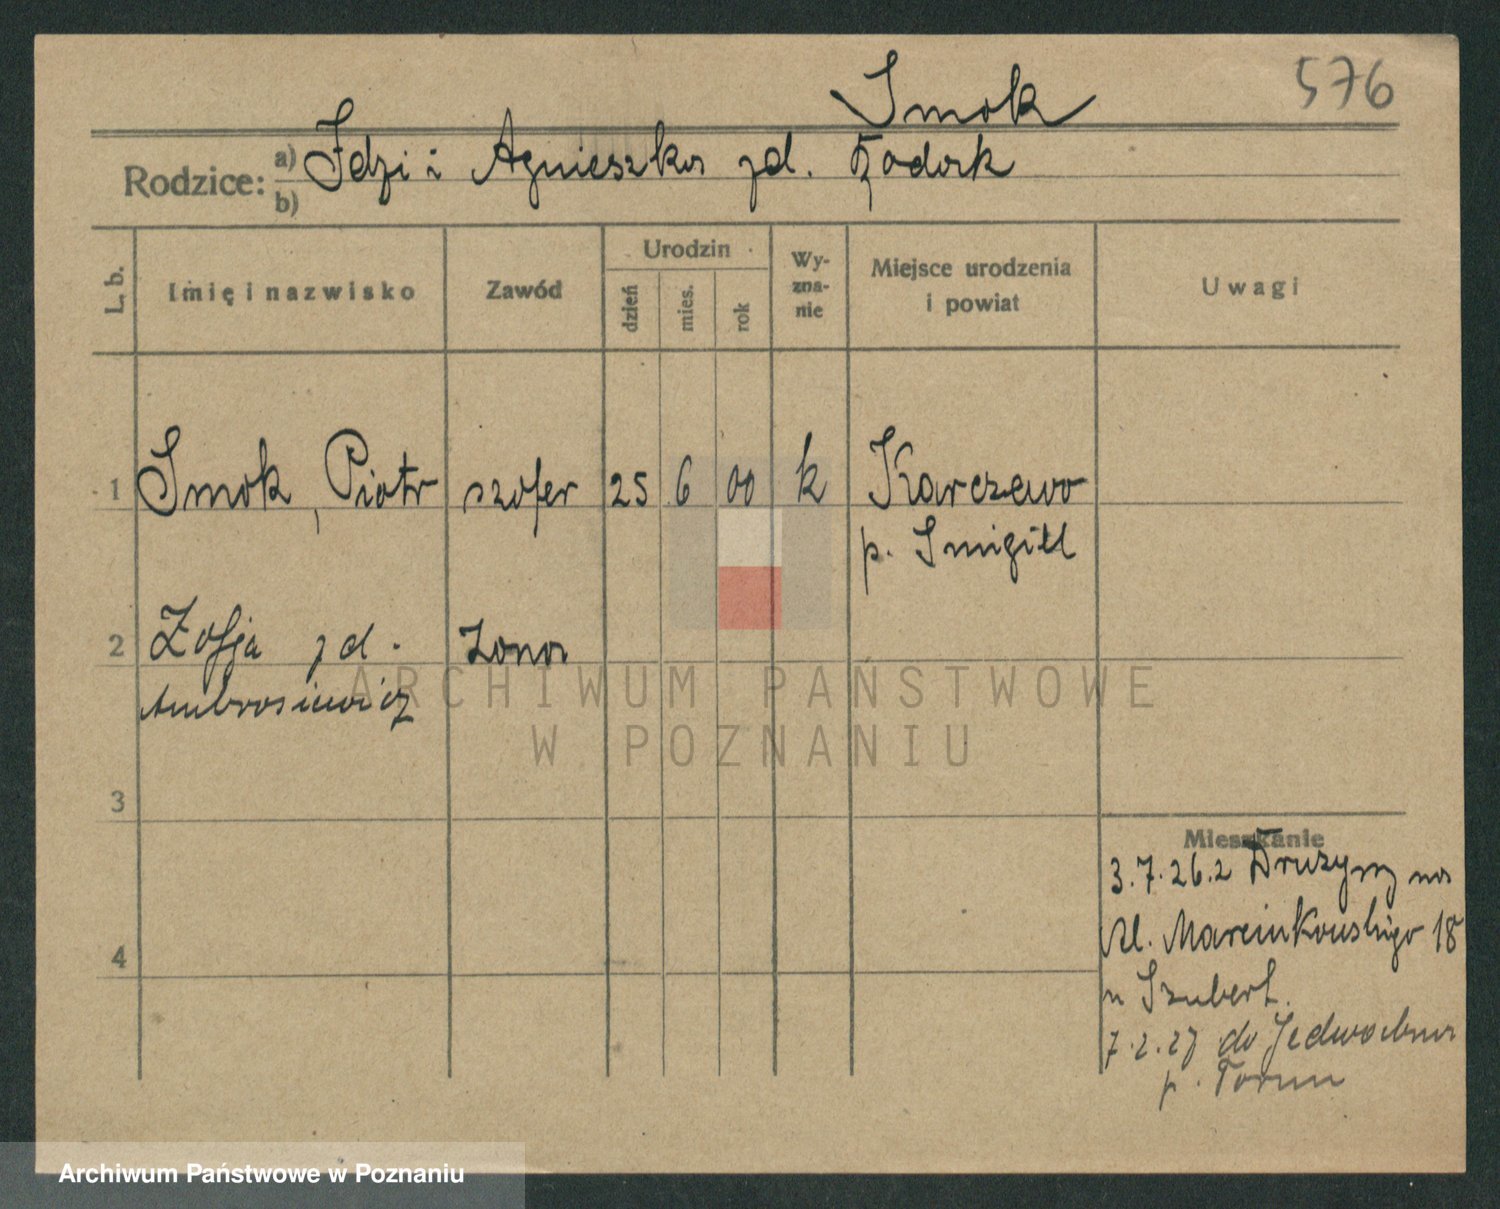 Smok
576
Rodzice: a) Idzi i Agnieszka zd.
b)
L. b.
Imię i nazwisko
Zawód
Urodzin
dzień
mies.
rok
Wy-
zna-
nie
Miejsce urodzenia
i powiat
Uwagi
1 Smok, Piotr szofer 25 6 00 k Karczewo
p. Smigiel
2 Zofja zd. żona
Ambrosiewicz
3
4
Mieszkanie
3.7.26. z Drużyny na
Al. Marcinkowskiego 18
u Szubert.
7.2.27 do Jedwabna
p. Toruń
ARCHIWUM PAŃSTWOWE
W POZNANIU
Archiwum Państwowe w Poznaniu